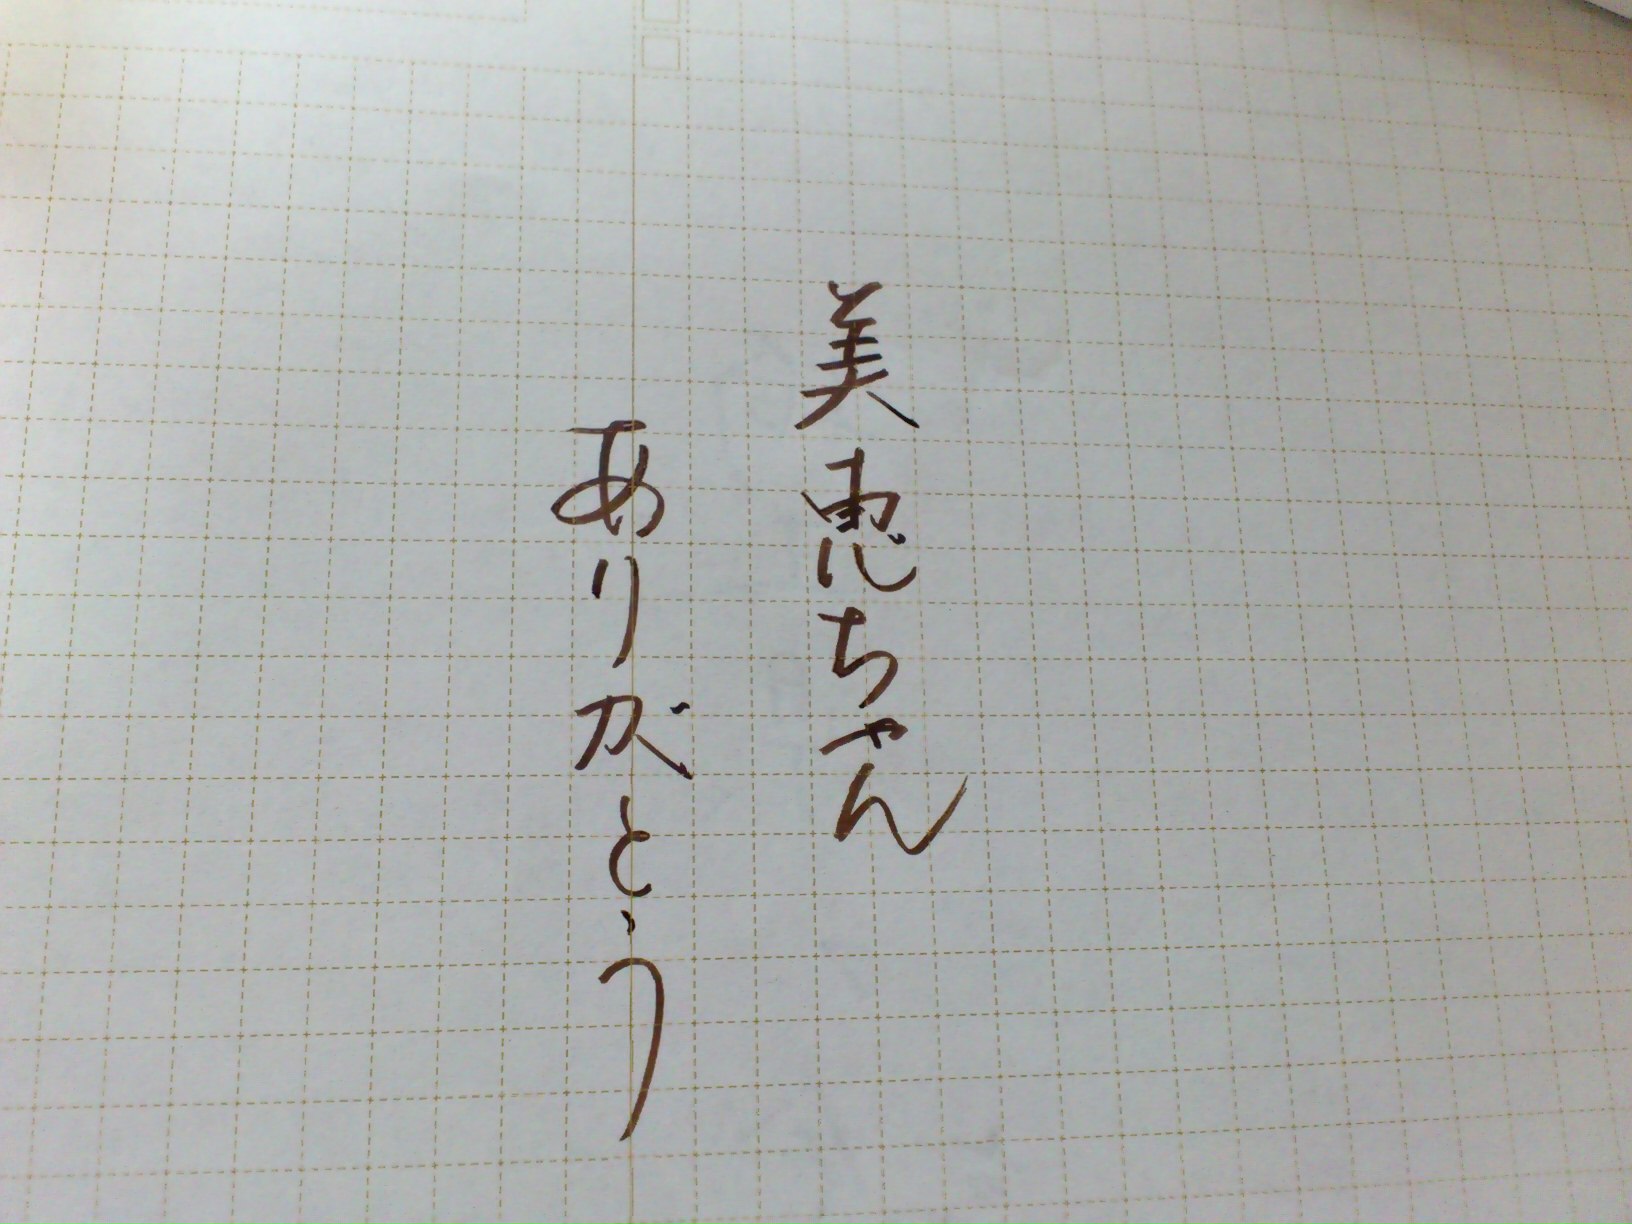 美恵ちゃん
ありがとう